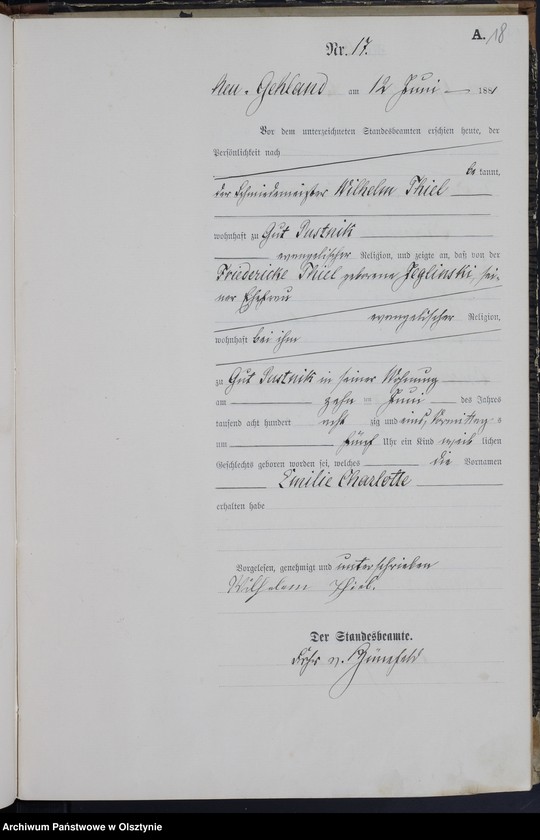 A. 18
Nr. 17.
Neu-Gehland am 12 Juni 1881
Vor dem unterzeichneten Standesbeamten erschien heute, der
Persönlichkeit nach
be kannt,
der Schmiedemeister Wilhelm Thiel
wohnhaft zu Gut Pustnik
evangelischer Religion, und zeigte an, daß von der
Friedericke Thiel geborene Jeglinski, sei-
ner Ehefrau
evangelischer Religion,
wohnhaft bei ihm
zu Gut Pustnik in seiner Wohnung
am zehn ten Juni des Jahres
tausend acht hundert acht zig und eins, Vormittag s
um fünf Uhr ein Kind weib lichen
Geschlechts geboren worden sei, welches die Vornamen
Emilie Charlotte
erhalten habe
Vorgelesen, genehmigt und unterschrieben
Wilhelm Thiel.
Der Standesbeamte.
v.
Archiwum Państwowe w Olsztynie